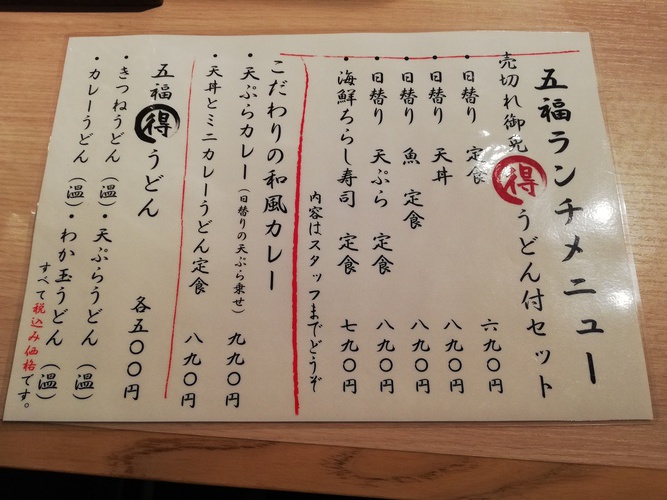 五福ランチメニュー
売切れ御免 得 うどん付セット
・日替り 定食 六九〇円
・日替り 天丼 八九〇円
・日替り 魚 定食 八九〇円
・日替り 天ぷら 定食 八九〇円
・海鮮ちらし寿司 定食 七九〇円
内容はスタッフまでどうぞ
こだわりの和風カレー
・天ぷらカレー(日替りの天ぷら乗せ) 九九〇円
・天丼とミニカレーうどん定食 八九〇円
五福 得 うどん 各五〇〇円
・きつねうどん(温)・天ぷらうどん(温)
・カレーうどん(温)・わか玉うどん(温)
すべて税込み価格です。